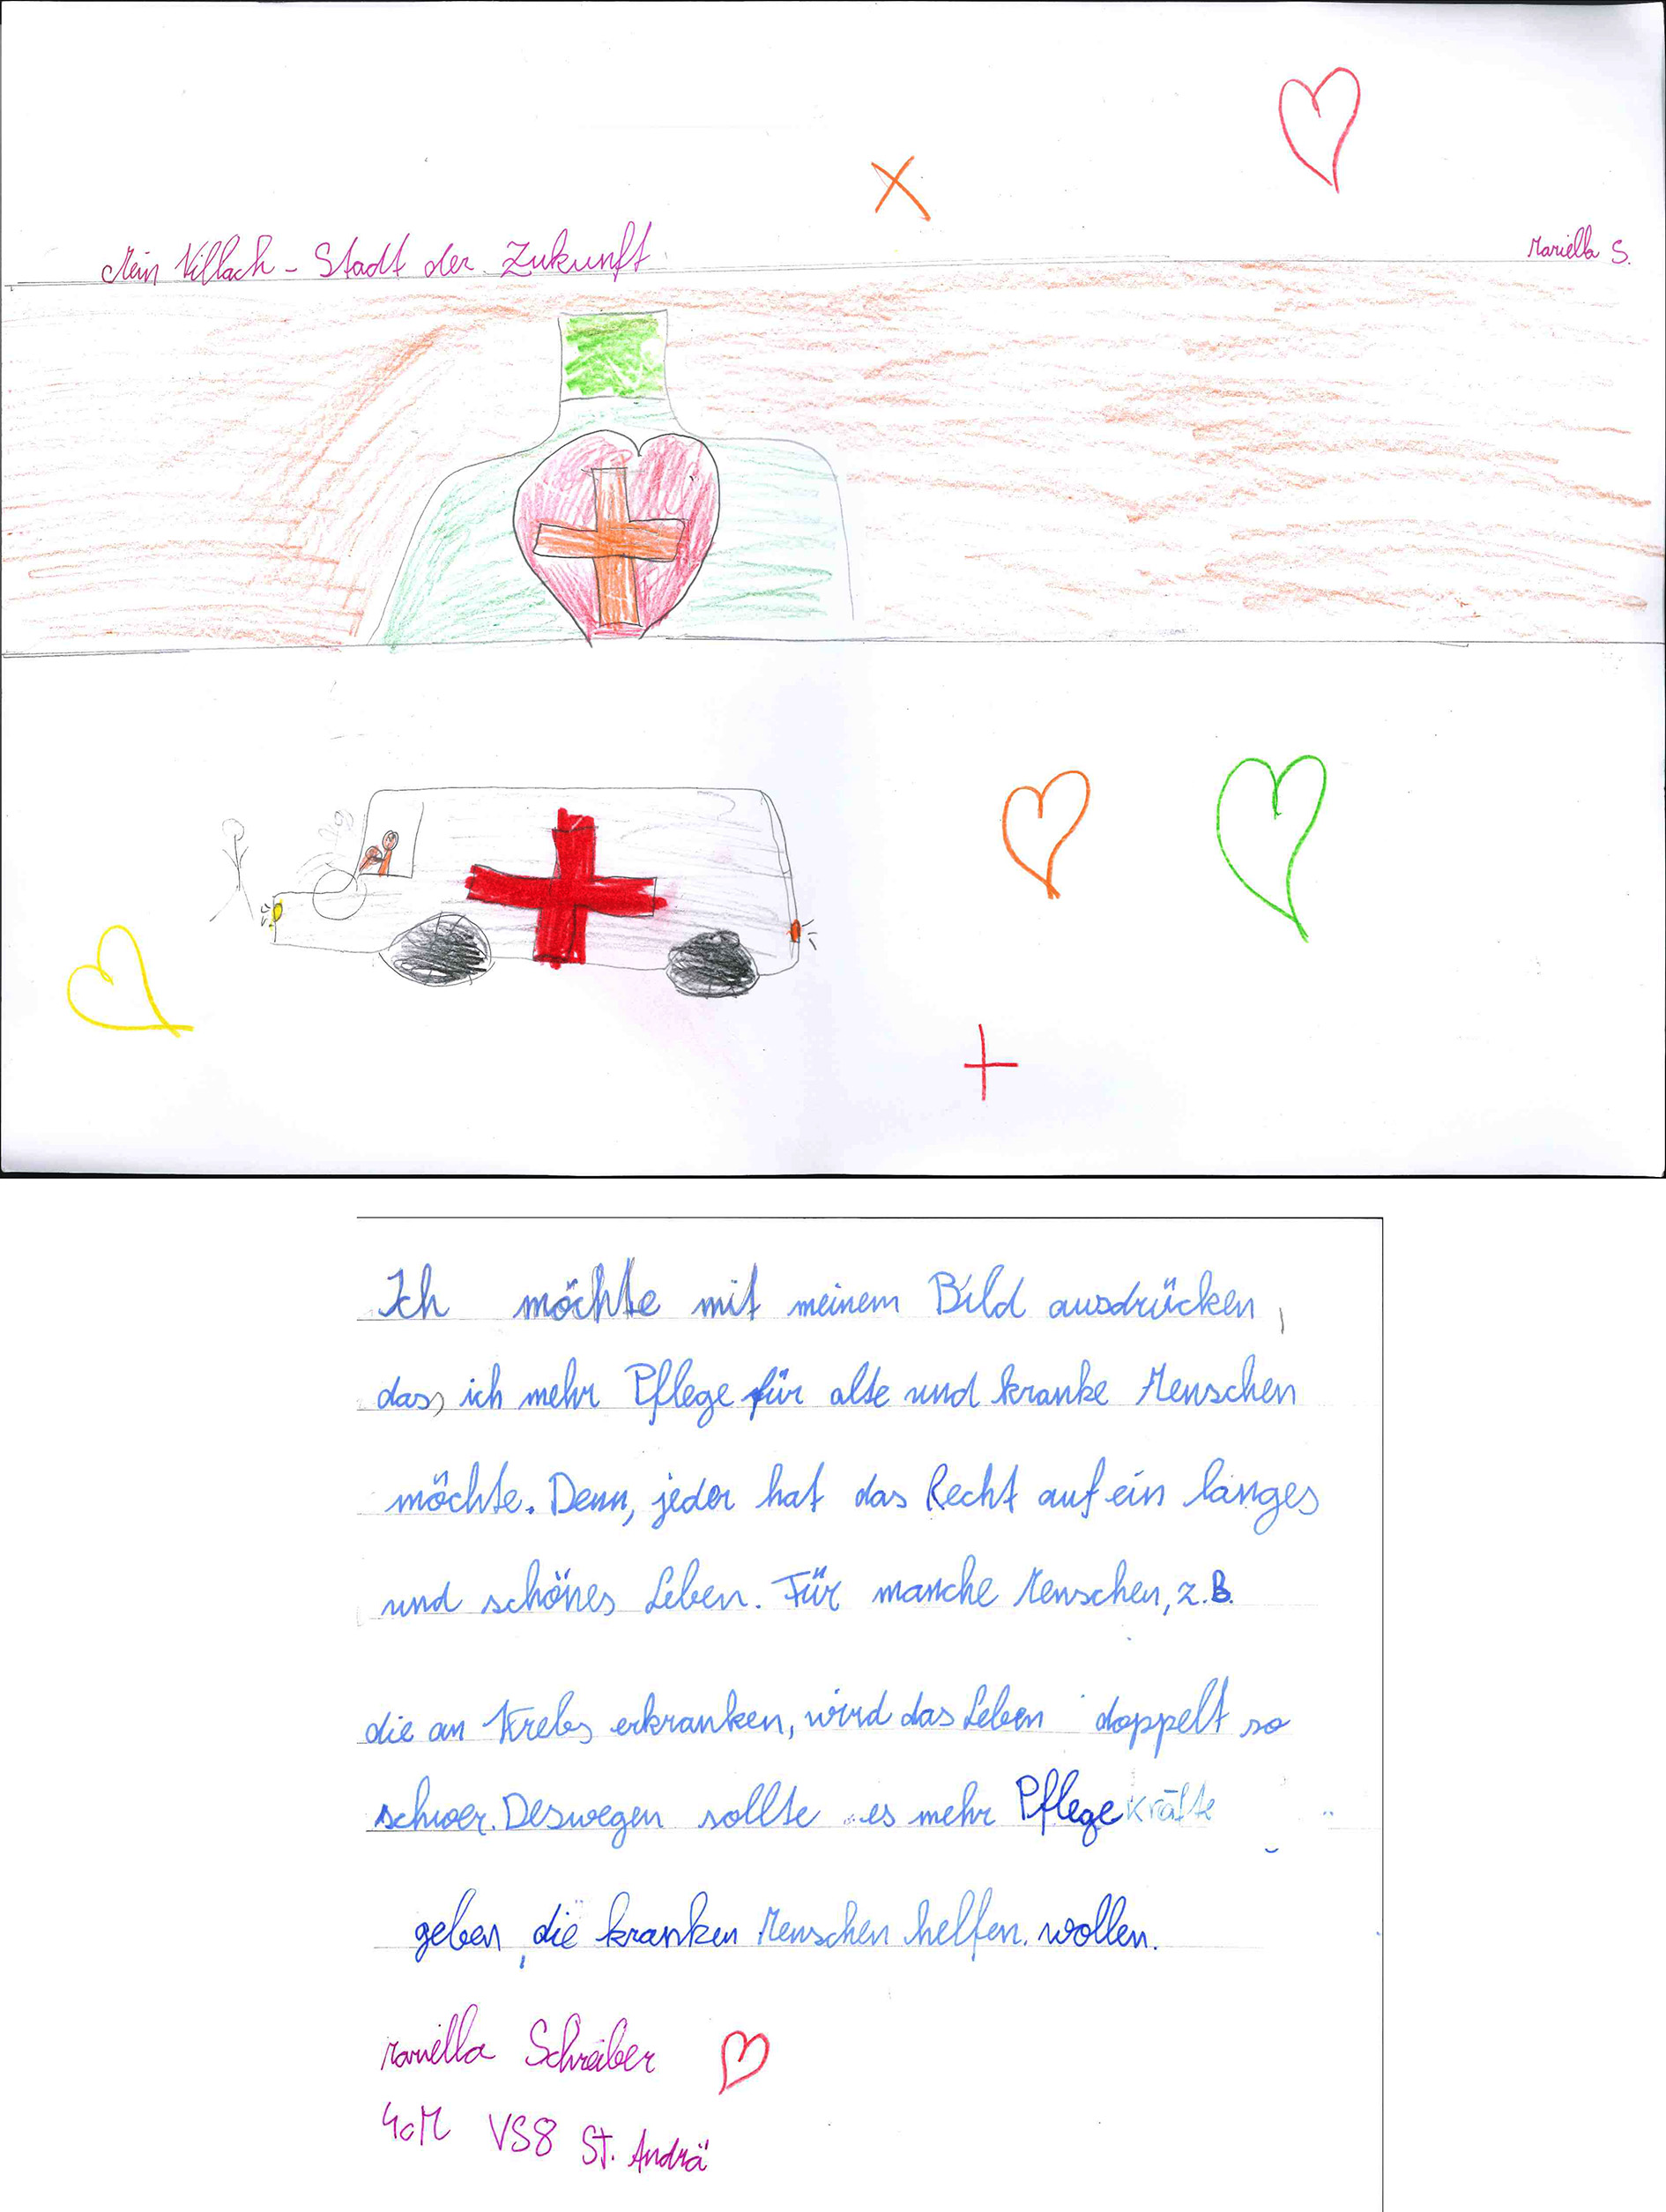 Mein Villach - Stadt der Zukunft
Mariella S.
Ich möchte mit meinem Bild ausdrücken,
das, ich mehr Pflege für alte und kranke Menschen
möchte. Denn, jeder hat das Recht auf ein langes
und schönes Leben. Für manche Menschen, z.B.
die an Krebs erkranken, wird das Leben doppelt so
schwer. Deswegen sollte es mehr Pflegekräfte
geben, die kranken Menschen helfen wollen.
Mariella Schreiber
4cM VS8 St. Andrä